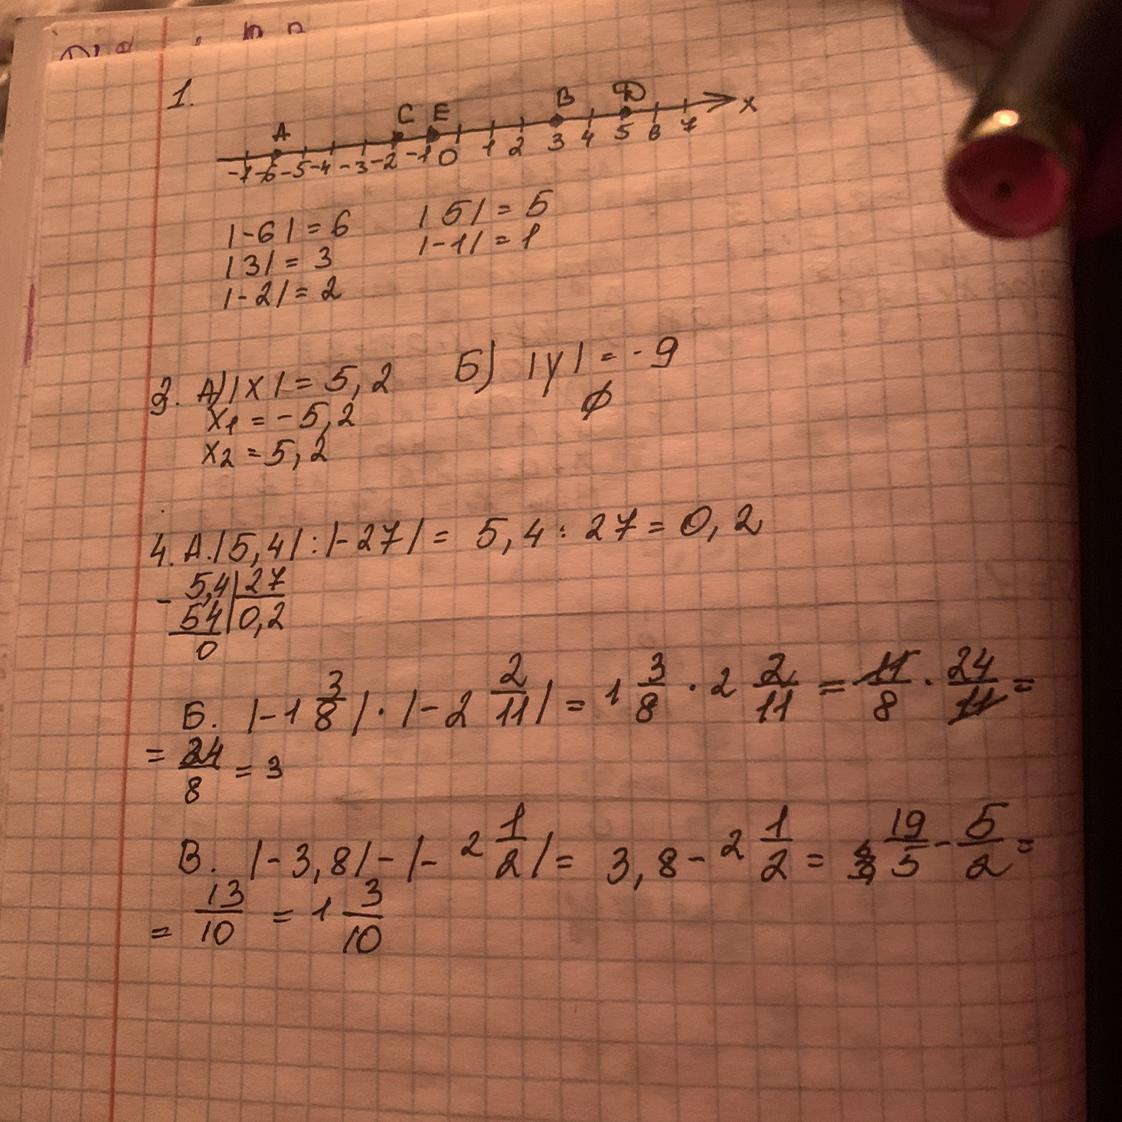 1.
A C E B D x
-7 -6 -5 -4 -3 -2 -1 0 1 2 3 4 5 6 7
|-6| = 6 |5| = 5
|3| = 3 |-1| = 1
|-2| = 2
3. А) |x| = 5,2 Б) |y| = -9
x₁ = -5,2 ∅
x₂ = 5,2
4. А. |5,4| : |-27| = 5,4 : 27 = 0,2
- 5,4 | 27
54 | 0,2
0
Б. |-1 3/8| · |-2 2/11| = 1 3/8 · 2 2/11 = 11/8 · 24/11 =
= 24/8 = 3
В. |-3,8| - |-2 1/2| = 3,8 - 2 1/2 = 19/5 - 5/2 =
= 13/10 = 1 3/10